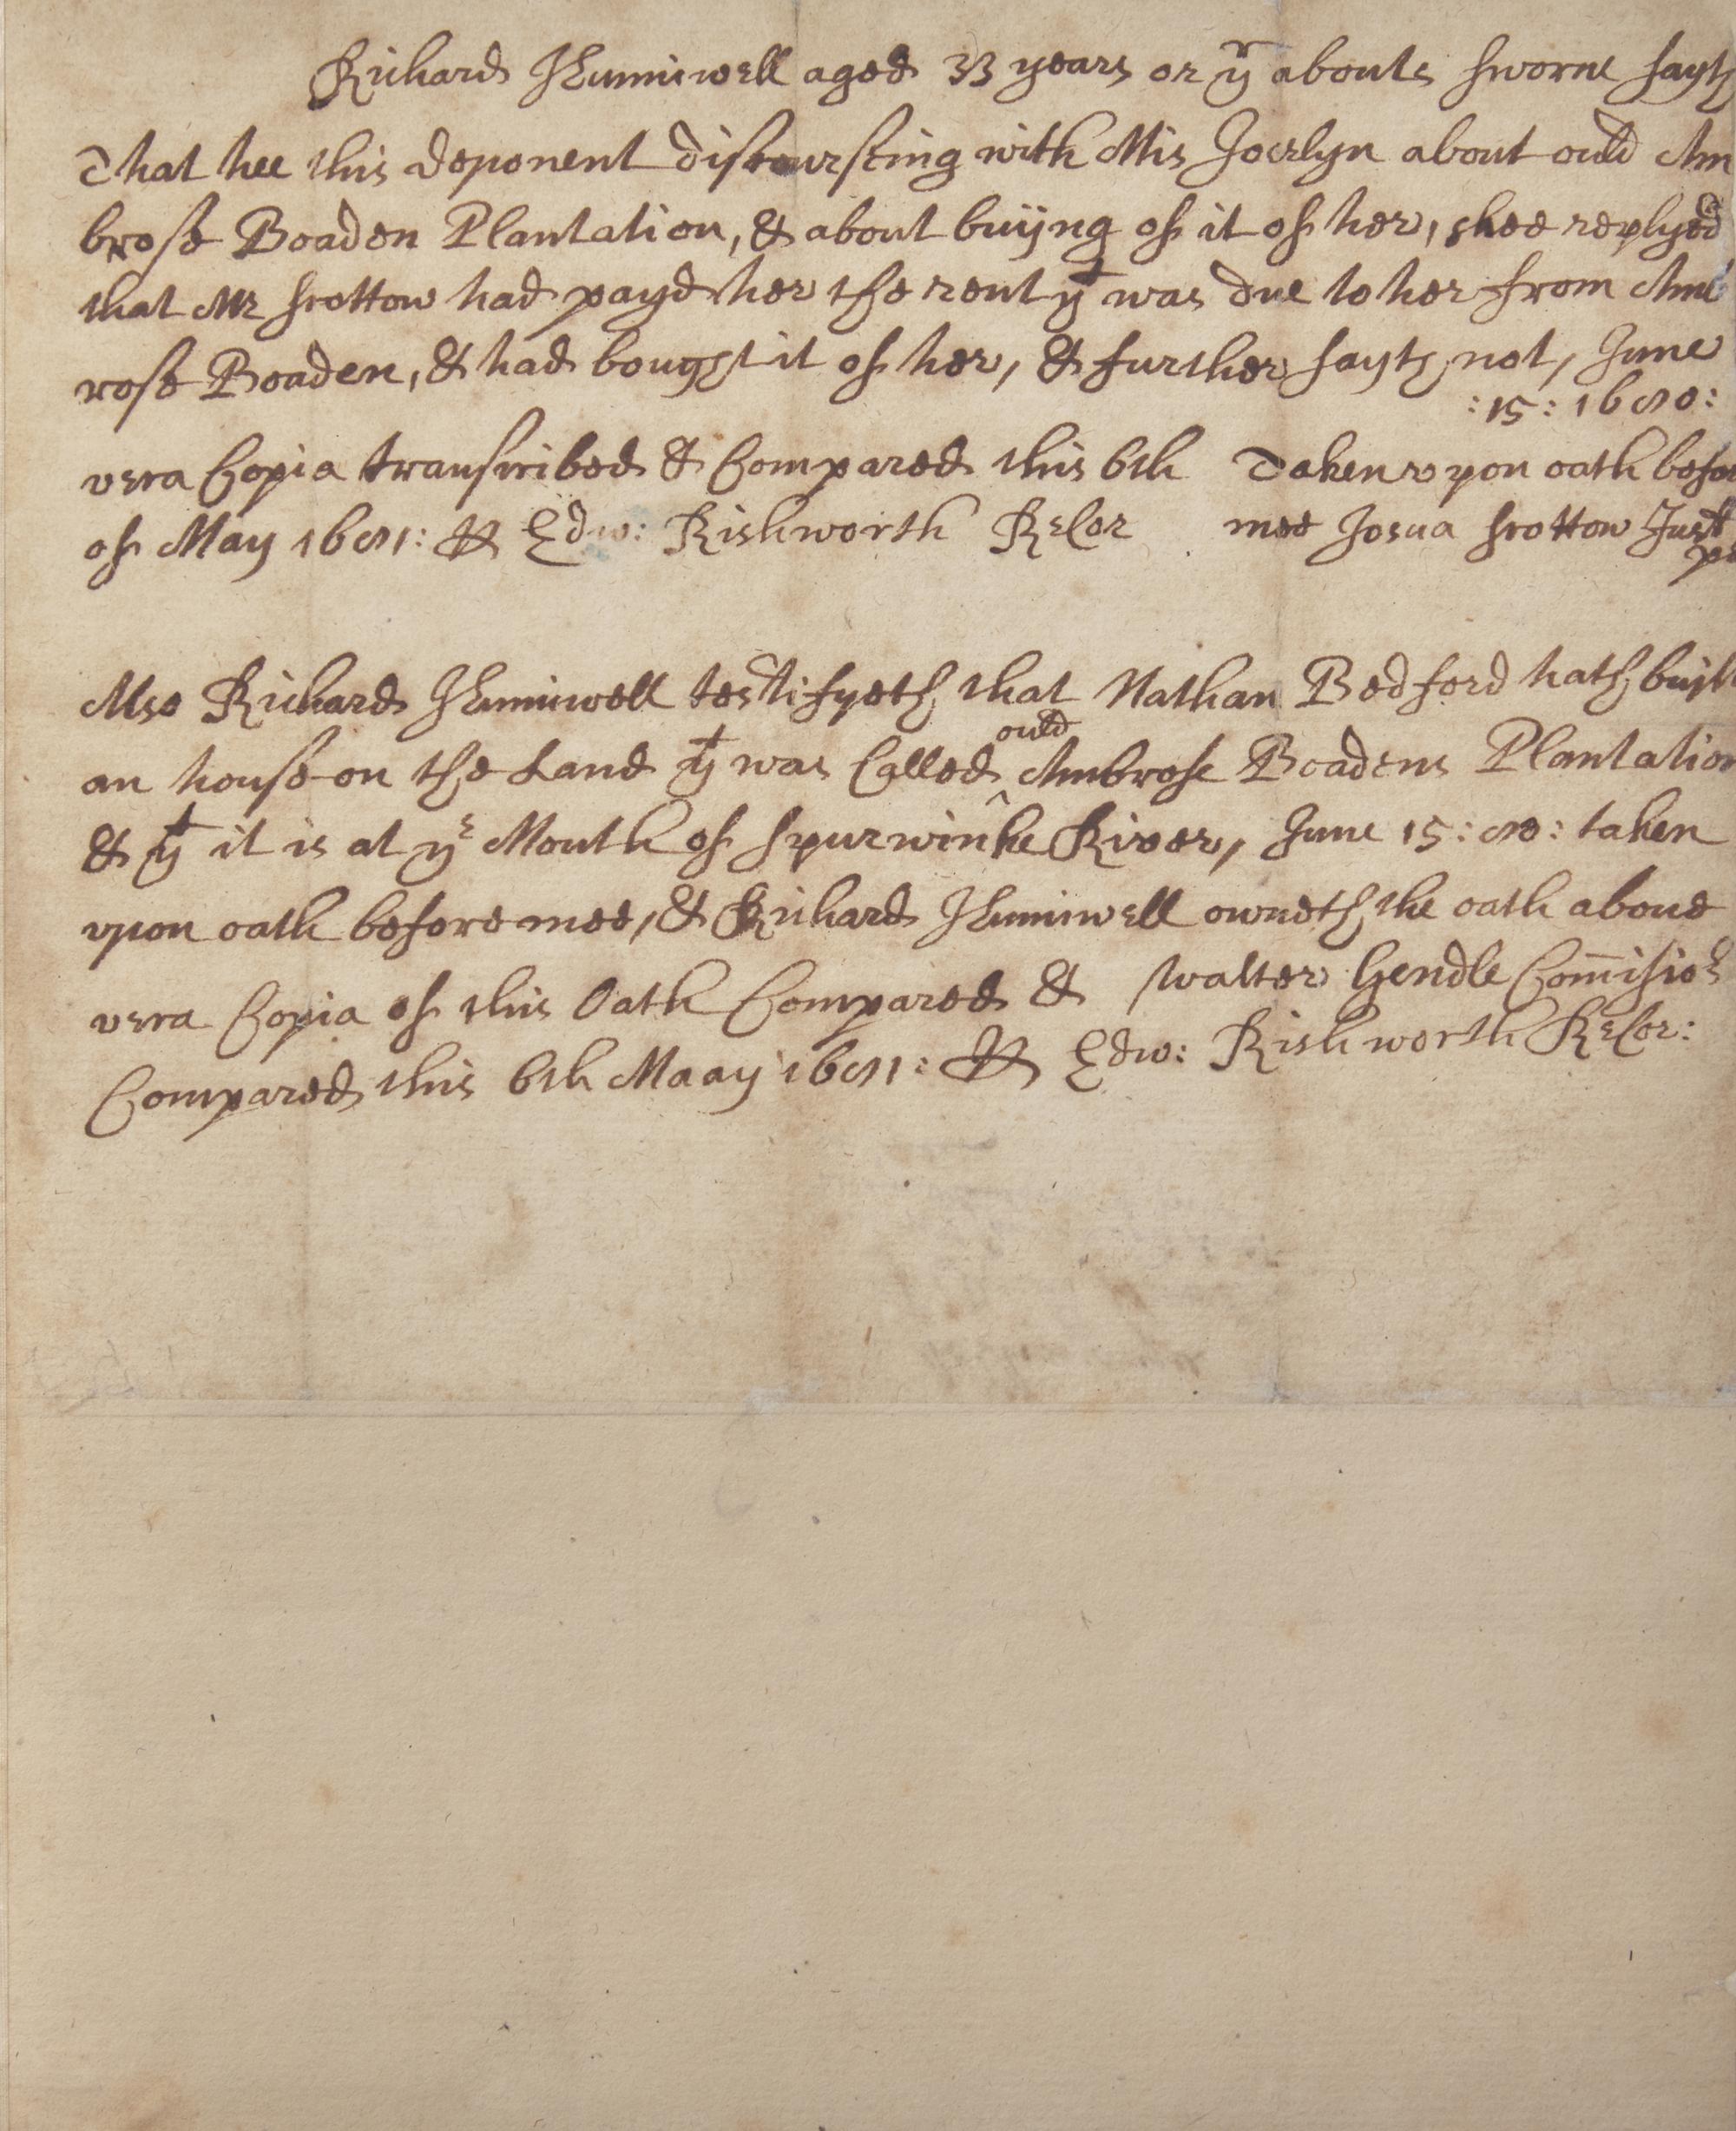 Richard Hunniwell aged 33 years or yr abouts sworne sayth
That hee this Deponent discoursing with Mis Jocelyn about ould Am
brose Boaden Plantation, & about buijng of it of her, shee replyed
that Mr Scottow had payd her the rent yt was due to her from Amb
rose Boaden, & had bought it of her, & further sayth not, June
:15: 1680:
vera Copia transcribed & Compared this 6th Taken vpon oath before
of May 1681: p Edw: Rishworth ReCor mee Josua Scottow Just
pe
Also Richard Hunniwell testifyeth that Nathan Bedford hath buylt
ould
an house on the Land yt was Called ^ Ambrose Boadens Plantation
& yt it is at ye Mouth of Spurwinke River, June 15: 80: taken
vpon oath before mee, & Richard Hunniwell owneth the oath aboue
vera Copia of this Oath Compared & Walter Gendle Com̄isior
Compared this 6th Maay 1681: p Edw: Rishworth ReCor: